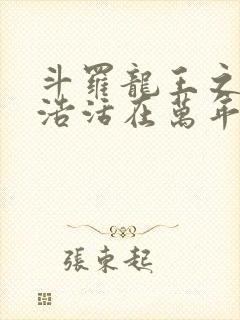 斗羅龍王之
浩活在萬年
張東起